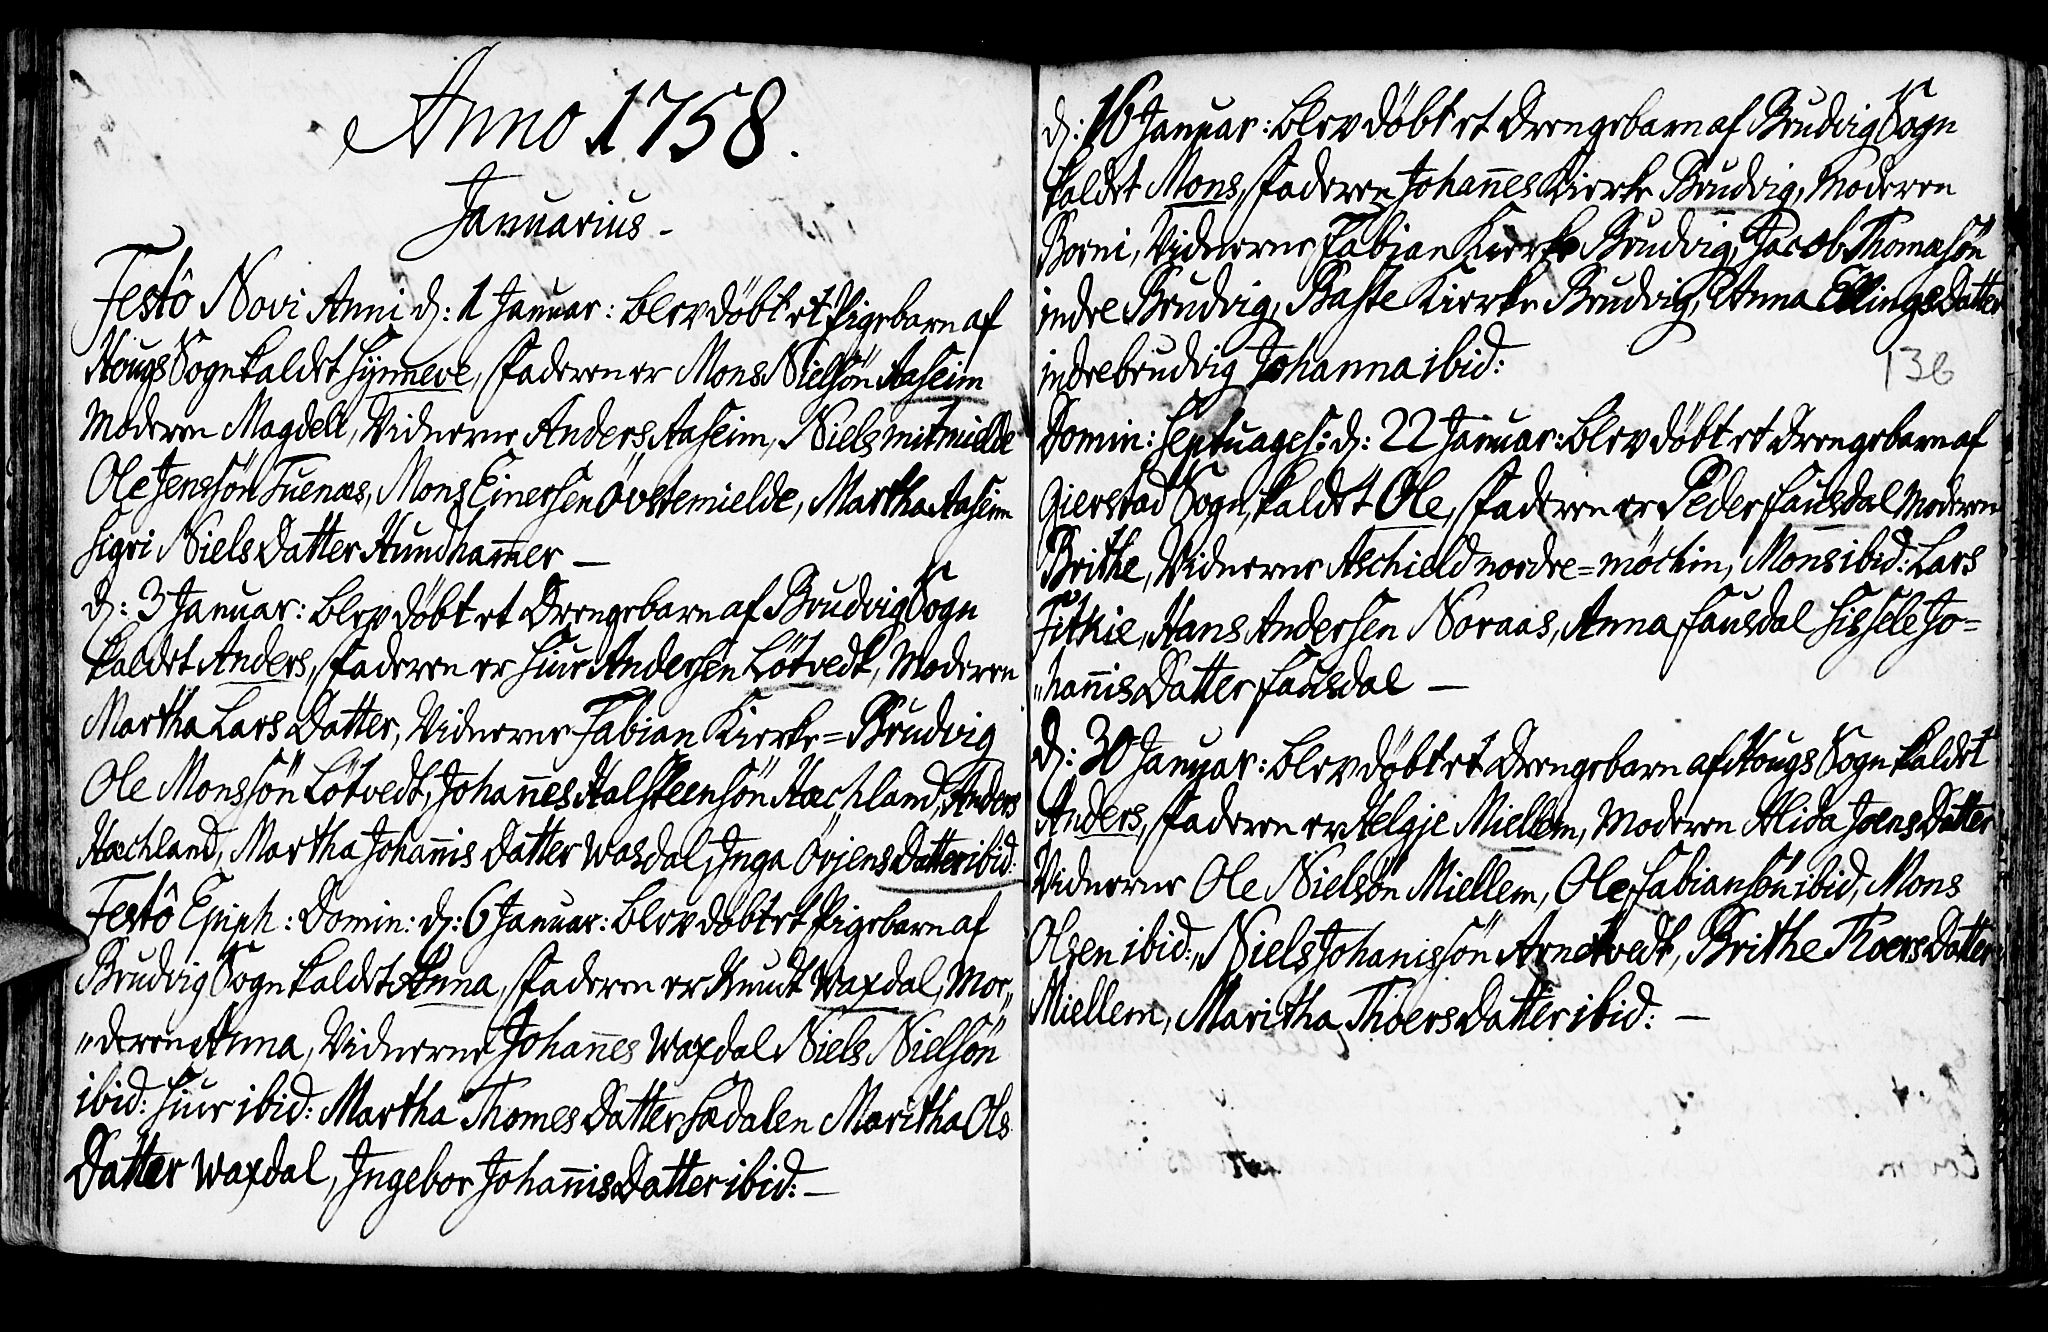 Anno 1758.
Januarius -
Festô Novi Anni d: 1 Januar: blev döbt et Pigebarn af
Hougs Sogn kaldet Synneve, Faderen er Mons Nielsön Aaseim
Moderen Magdeli, Vidnerne Anders Aaseim, Niels mitmielde
Ole Jenssön Tuenæs, Mons Einersen övstemielde, Martha Aaseim
Sigri Niels Datter Hundhammer —
d: 3 Januar: blev döbt et Drengebarn af Brudvig Sogn
kaldet Anders, Faderen er Siur Andersen Lötvedt, Moderen
Martha Lars Datter, Vidnerne Fabian Kierke=Brudvig
Ole Monssön Lötvedt, Johannes Halsteensön Hæchland, Anders
Hæchland, Martha Johannis Datter Waxdal, Inga Örjens Datter ibid:
Festô Epiph: Domin: d: 6 Januar: blev döbt et Pigebarn af
Brudvig Sogn kaldet Anna, Faderen er Knudt Waxdal, Mo„
„deren Anna, Vidnerne Johannes Waxdal Niels Nielsön
ibid: Siur ibid: Martha Thomes Datter Sædalen Maritha Ols
Datter Waxdal, Ingebor Johannis Datter ibid: —
d: 16 Januar: blev döbt et Drengebarn af Brudvig Sogn
kaldet Mons, Faderen Johannes Kierke Brudvig, Moderen
Borni, Vidnerne Fabian Kierke Brudvig, Jacob Thomasön
indre Brudvig, Baste Kierke Brudvig, Anna Ellings Datter
indrebrudvig Johanna ibid:
138
Domin: Septuages: d: 22 Januar: blev döbt et Drengebarn af
Gierstad Sogn, kaldet Ole, Faderen er Peder Fausdal Moderen
Brithe, Vidnerne Aschield nordre=möckin, Mons ibid: Lars
Fithie, Hans Andersen Noraas, Anna Fausdal Sissele Jo=
„hannis Datter Fausdal —
d: 30 Januar: blev döbt et Drengebarn af Hougs Sogn kaldet
Anders, Faderen er Helgje Miellem, Moderen Alida Joens Datter
Vidnerne Ole Nielsön Miellem, Ole Fabiansön ibid, Mons
Olsen ibid: Niels Johanissön Arnetvedt, Brithe Thoers Datter
Miellem, Maritha Thoers Datter ibid: —